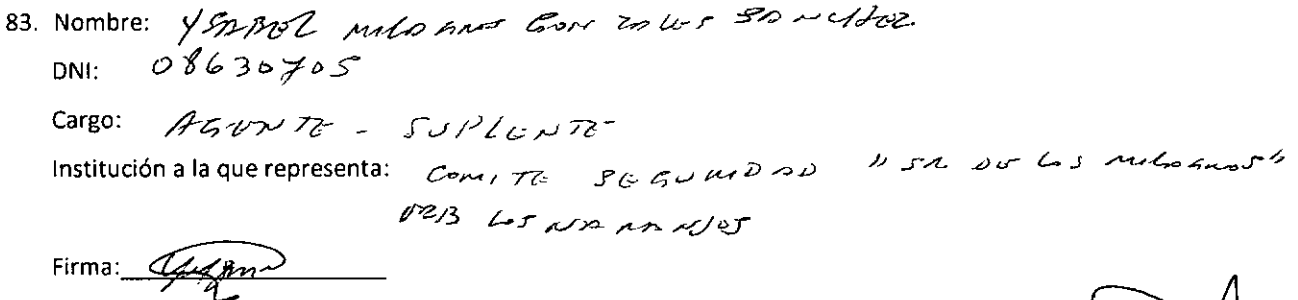 83. Nombre: YSABEL MILAGROS GONZALES SANCHEZ.
DNI: 08630705
Cargo: AGENTE - SUPLENTE
Institución a la que representa: COMITE SEGURIDAD "SR DE LOS MILAGROS"
URB LOS NARANJOS
Firma: